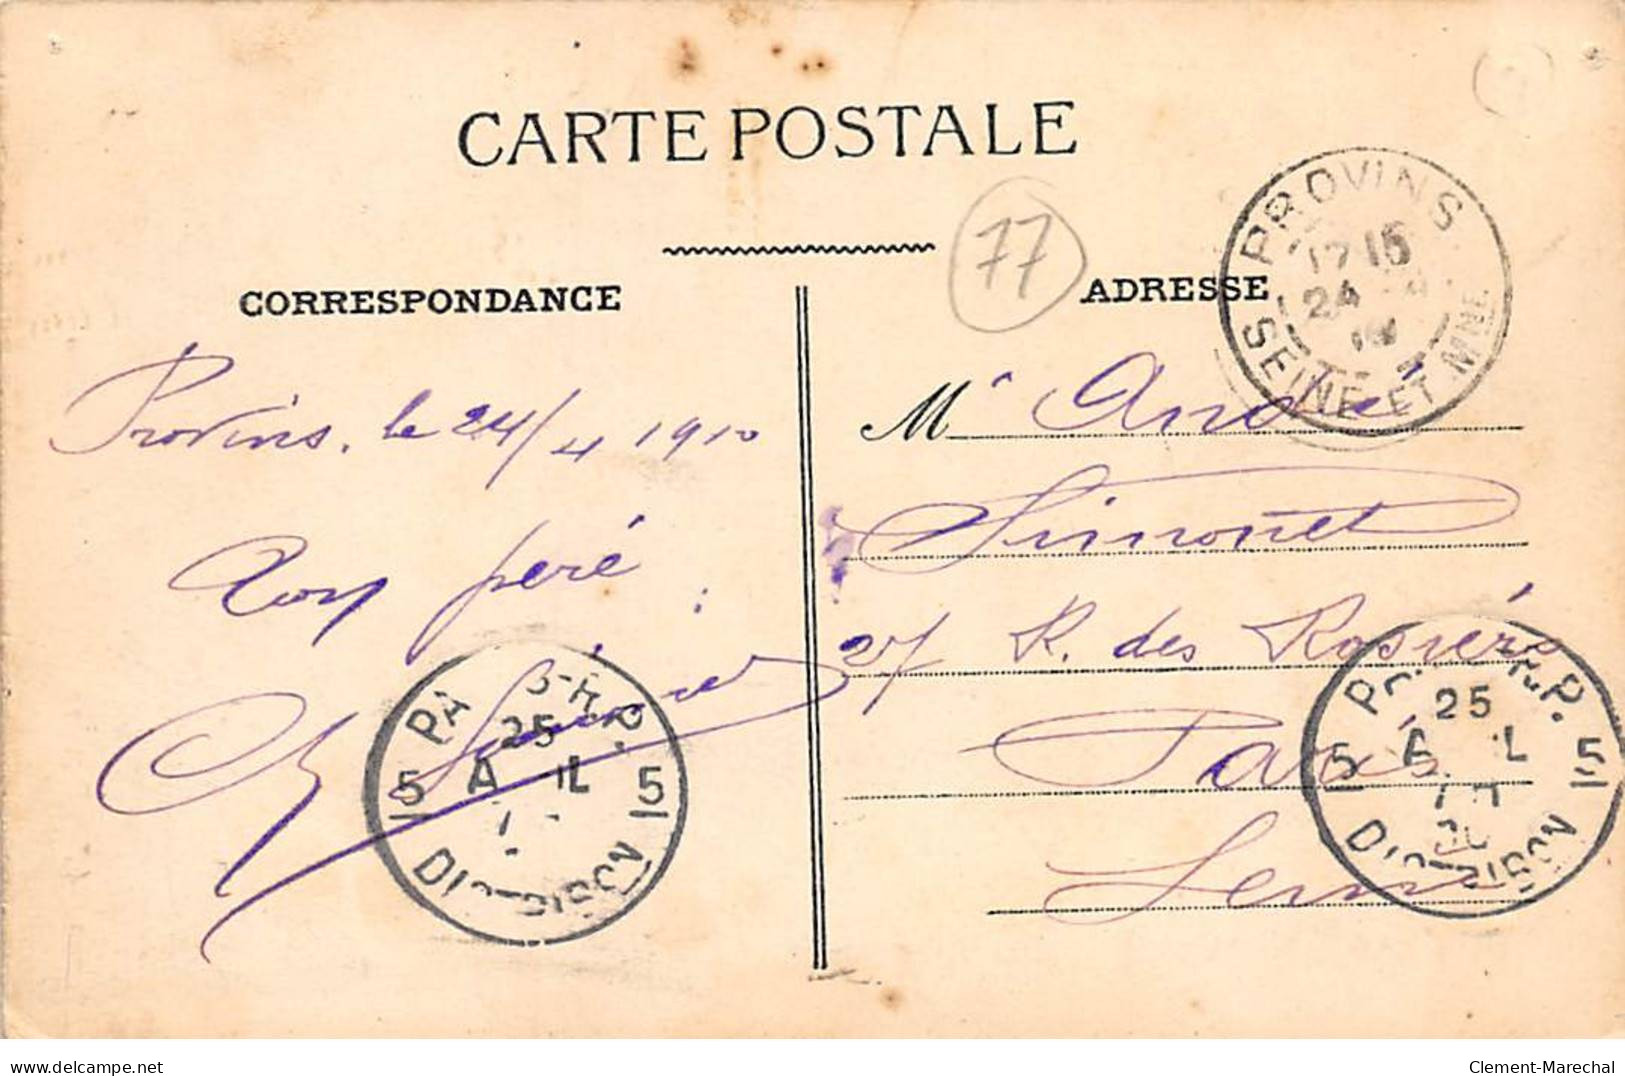 CARTE POSTALE
77
CORRESPONDANCE
ADRESSE
PROVINS
17 15
24 -4
10
SEINE ET MNE
Provins, le 24/4 1910
Ton père
Mr André
Simonet
27 R. des Rosiers
Paris
Seine
25
5 5
DISTRIBUTION
25
5 5
DISTRIBUTION
Clement-Marechal